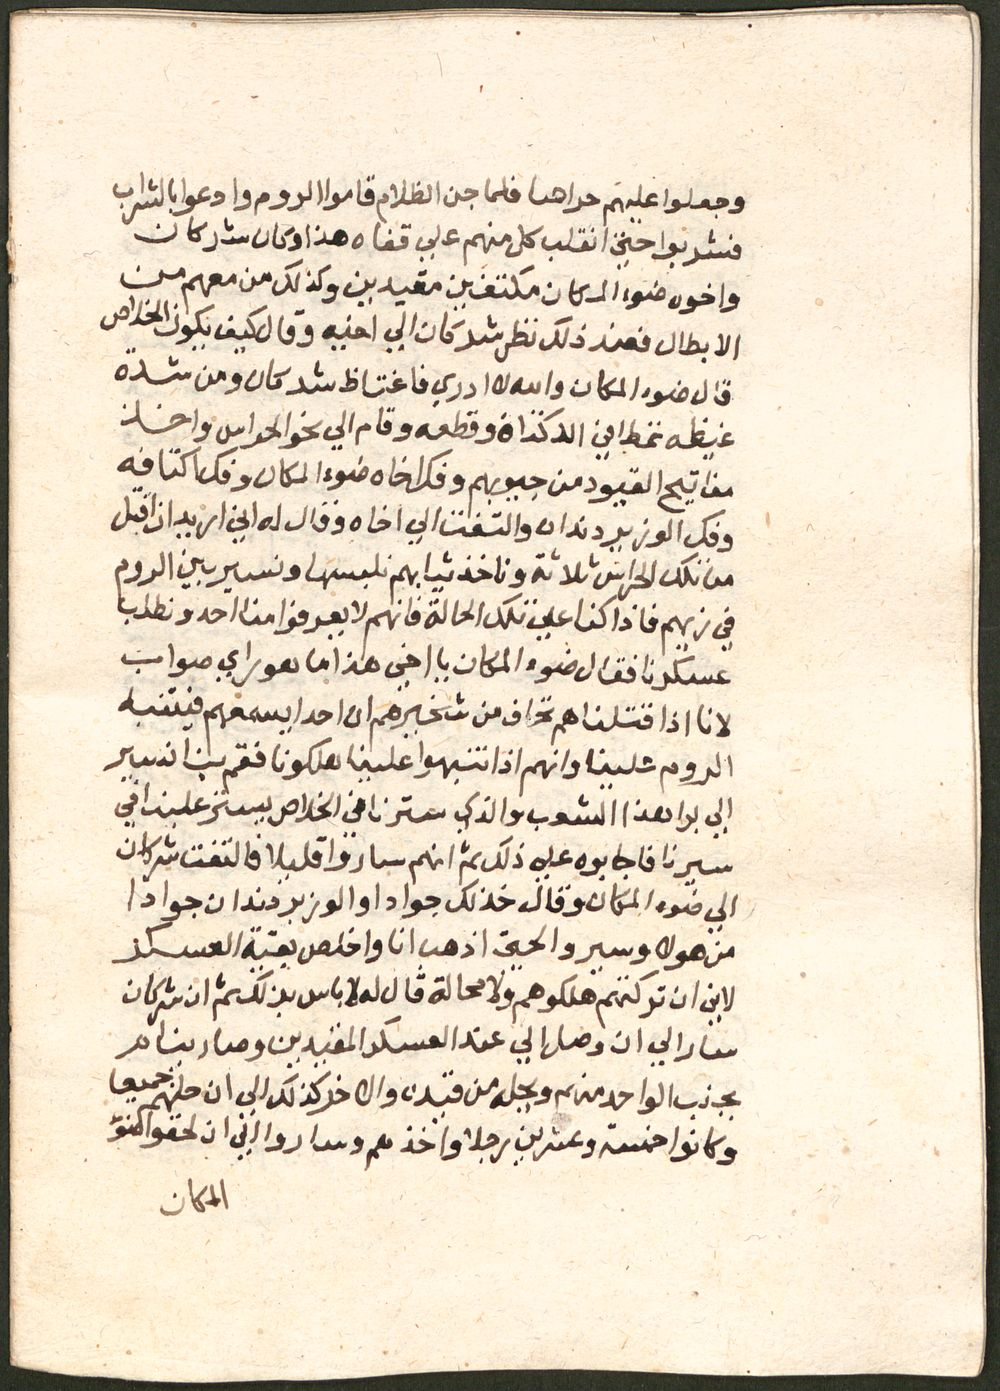 وجعلوا عليهم حراسا فلما جن الظلام قاموا الروم وادعوا بالشراب
فشربوا حتى انقلب كل منهم علي قفاه هذا وكان شركان
واخوه ضوء المكان مكتفين مقيدين وكذلك من معهم من
الابطال فعند ذلك نظر شركان الي اخيه وقال كيف يكون الخلاص
قال ضوء المكان والله لا ادري فاغتاظ شركان ومن شدة
غيظه تمطا في الكتاف وقطعه وقام الي نحو الحراس واخذ
مفاتيح القيود من جيوبهم وفك اخاه ضوء المكان وفك اكتافه
وفك الوزير دندان والتفت الي اخاه وقال له اني اريد ان اقتل
من تلك الحراس ثلاثة وناخذ ثيابهم نلبسها ونسير بين الروم
في زيهم فاذا كنا علي تلك الحالة فانهم لا يعرفوا منا احد ونطلب
عسكرنا فقال ضوء المكان يا اخي هذا ما هو راي صواب
لانا اذا قتلناهم نخاف من شخيرهم ان احدا يسمعهم فينتبه
الروم علينا وانهم اذا انتبهوا علينا هلكونا فقم بنا نسير
الي برا هذا الشعب والذي سترنا في الخلاص يستر علينا في
سيرنا فاجابوه علي ذلك ثم انهم ساروا قليلا فالتفت شركان
الي ضوء المكان وقال خذ لك جوادا والوزير دندان جوادا
من هولا وسيروا لحتى اذهب انا واخلص بقية العسكر
لاني ان تركتهم هلكوهم ولا محالة قال له لا باس بذلك ثم ان شركان
سار الي ان وصل الي عند العسكر المقيدين وصار بينهم
يجذب الواحد منهم ويحله من قيده والاخر كذلك الي ان حلهم جميعا
وكانوا خمسة وعشرين رجلا واخذهم وساروا الي ان لحقوا ضوء
المكان